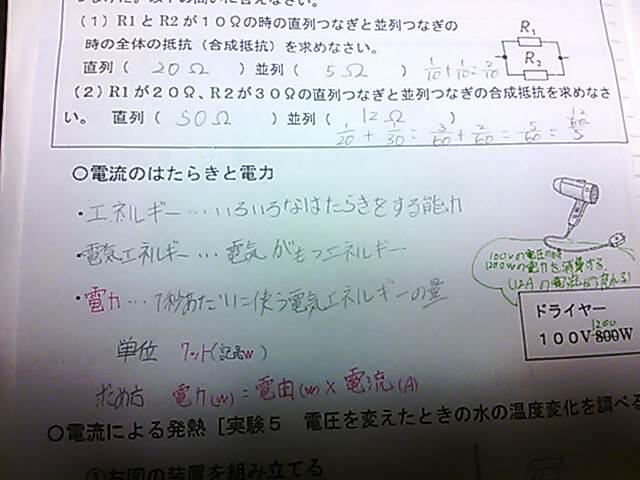 (1)R1とR2が10Ωの時の直列つなぎと並列つなぎの
時の全体の抵抗(合成抵抗)を求めなさい。
直列( 20Ω )並列( 5Ω ) 1/10+1/10=2/10
R1
R2
(2)R1が20Ω、R2が30Ωの直列つなぎと並列つなぎの合成抵抗を求めなさ
い。 直列( 50Ω )並列( 12Ω )
1/20 + 1/30 = 3/60 + 2/60 = 5/60 =
○電流のはたらきと電力
・エネルギー…いろいろなはたらきをする能力
・電気エネルギー…電気がもつエネルギー
・電力…1秒あたりに使う電気エネルギーの量
100Vの電圧の時
1200Wの電力を消費する
ドライヤー
1200
100V800W
単位 ワット(記号W)
求め方 電力(W)=電圧(V)×電流(A)
○電流による発熱[実験5 電圧を変えたときの水の温度変化を調べる
①右図の装置を組み立てる